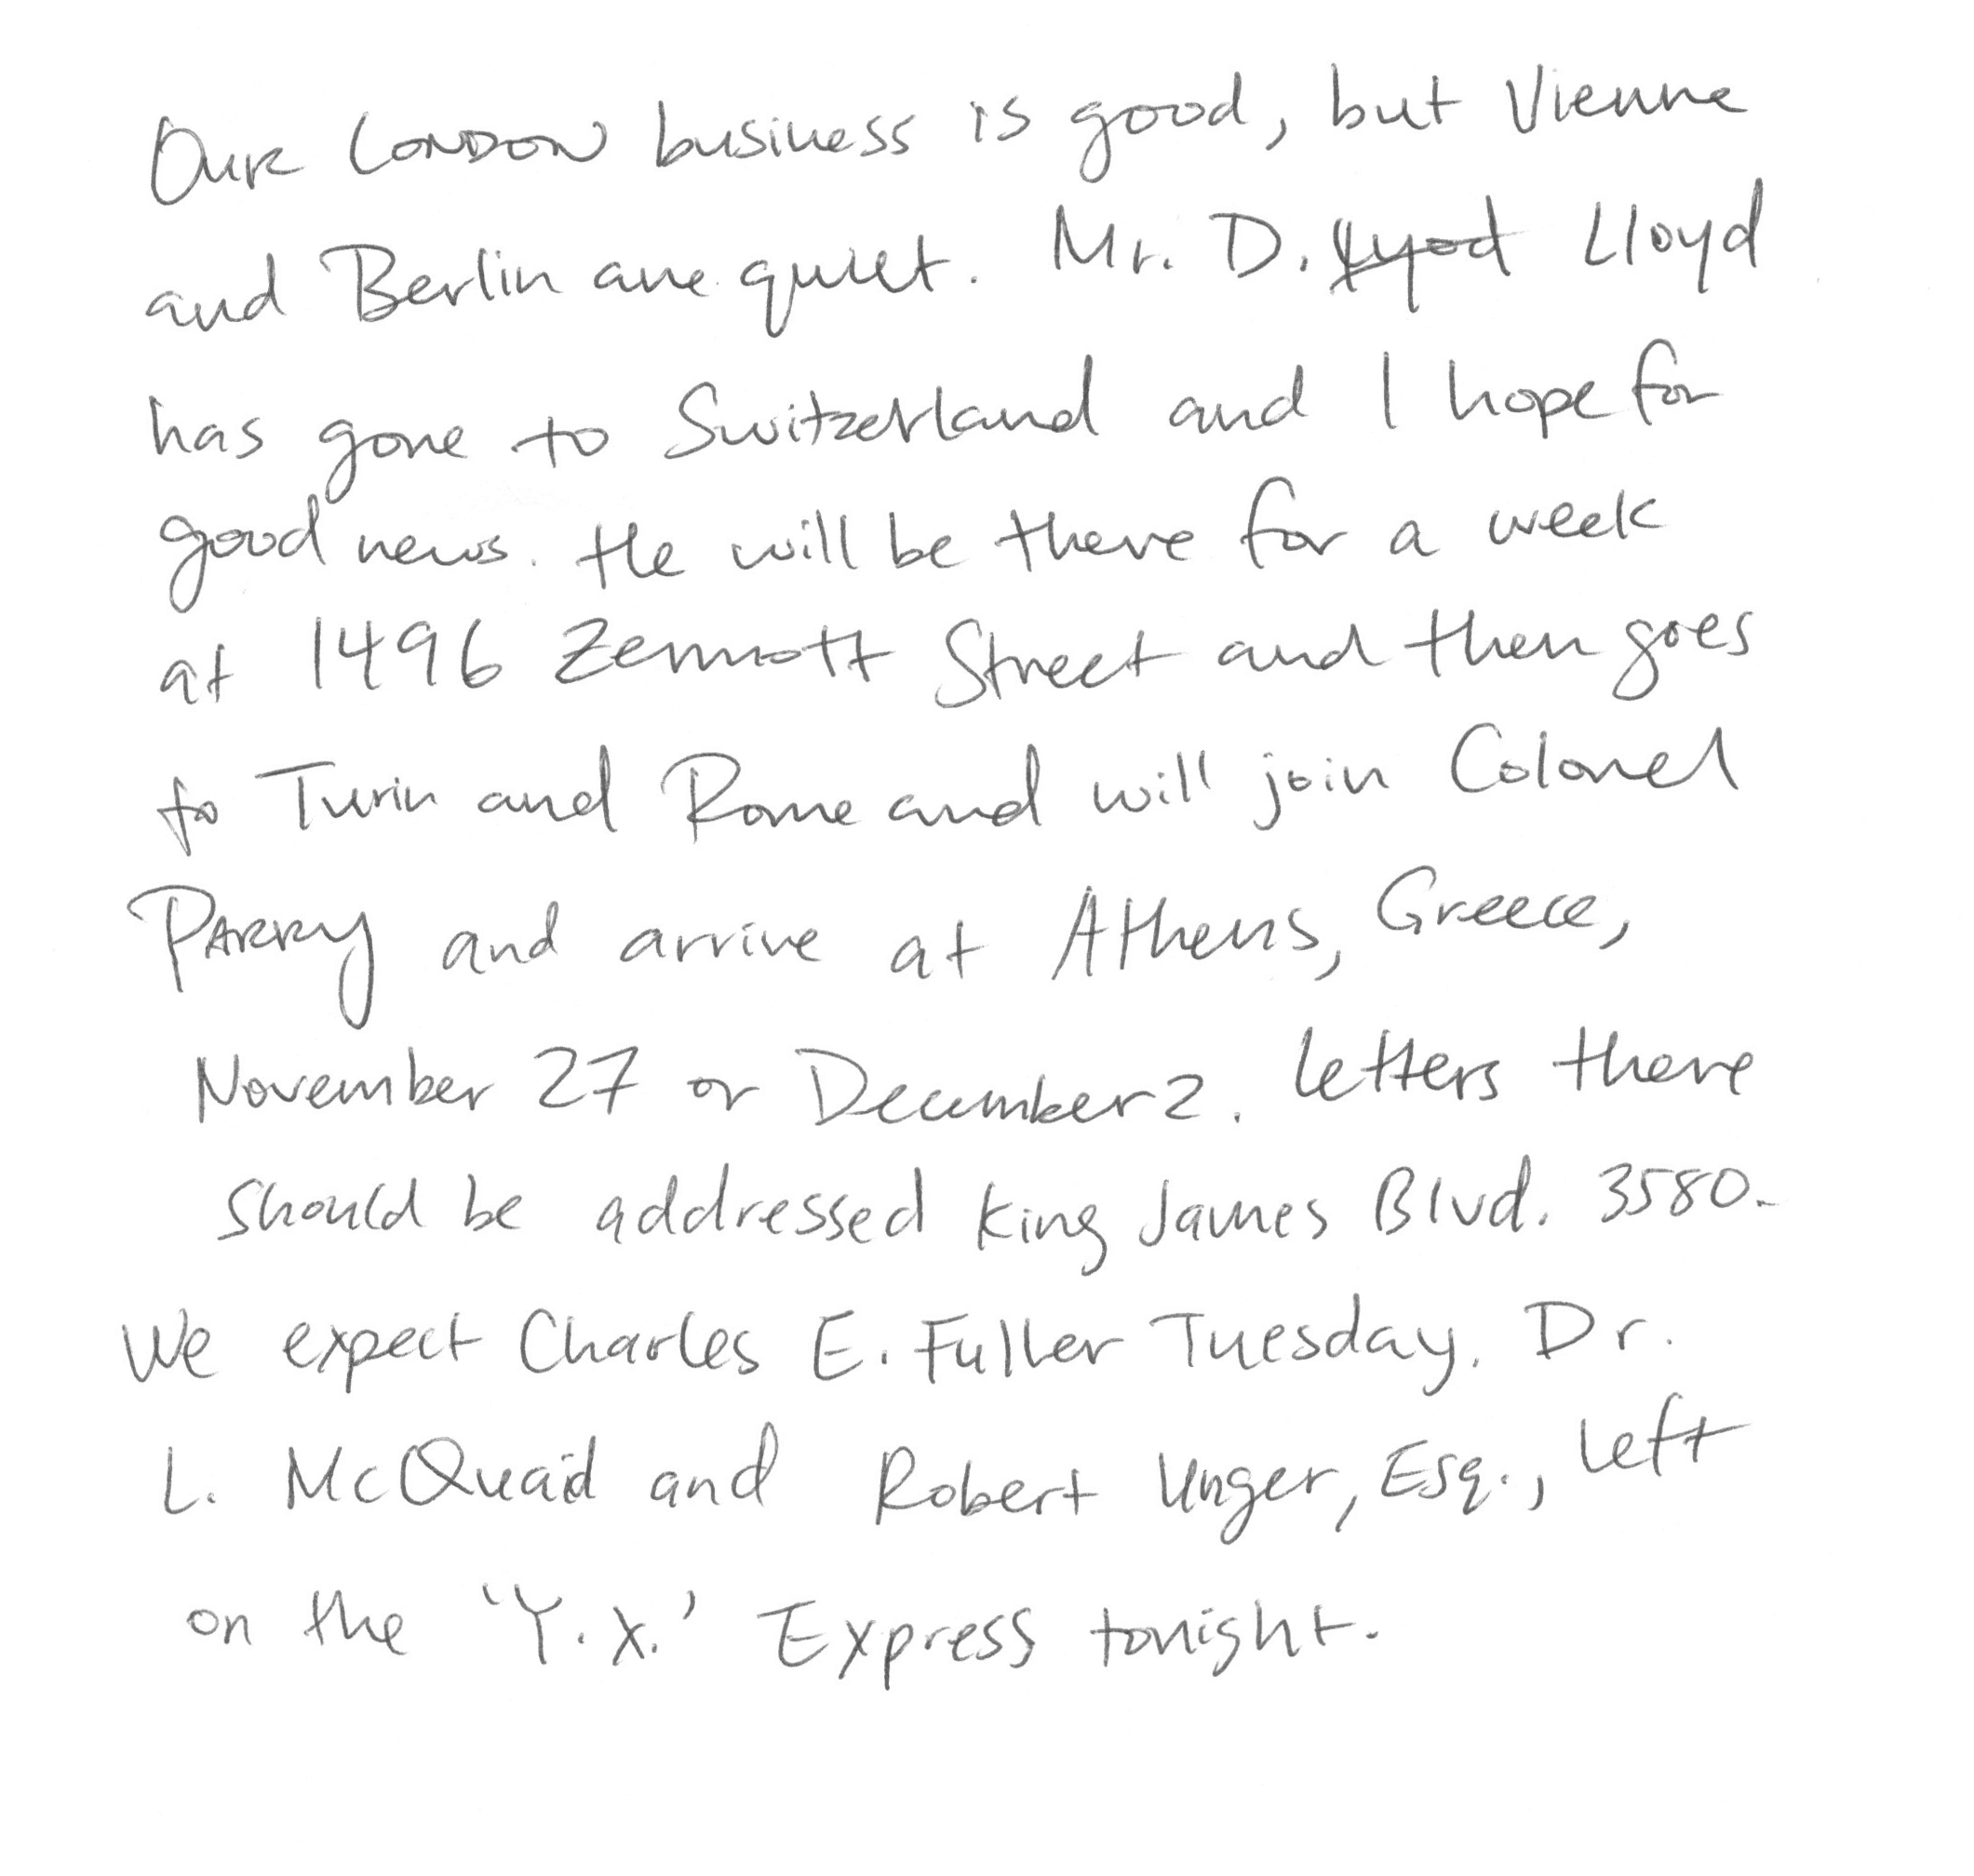 Our London business is good, but Vienne
and Berlin are quiet. Mr. D. Lloyd
has gone to Switzerland and I hope for
good news. He will be there for a week
at 1496 Zermott Street and then goes
to Turin and Rome and will join Colonel
Parry and arrive at Athens, Greece,
November 27 or December 2. Letters there
should be addressed King James Blvd. 3580.
We expect Charles E. Fuller Tuesday. Dr.
L. McQuaid and Robert Unger, Esq., left
on the 'Y.X.' Express tonight.